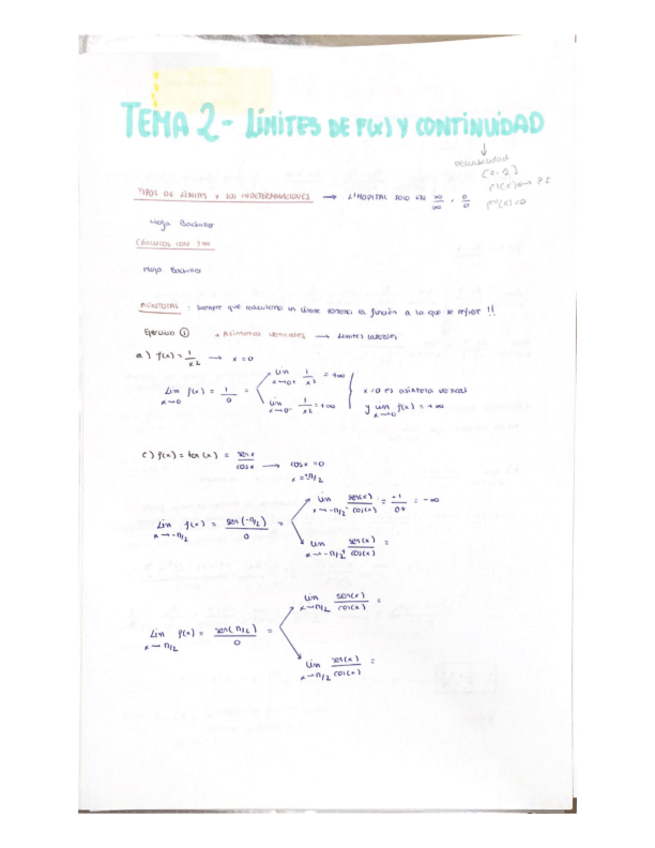 TEMA 2 - LÍMITES DE F(x) Y CONTINUIDAD
↓
Derivabilidad
TIPOS DE LÍMITES Y SUS INDETERMINACIONES → L'HOPITAL SOLO EN ∞/∞ , 0/0
Hoja
CÁLCULOS CON
Hoja
ASÍNTOTAS : Siempre que calculemos un límite ponemos la función a la que se refiere !!
Ejercicio ① • Asíntotas verticales → Límites laterales
a) f(x) = 1/x² → x = 0
Lim x→0 f(x) = 1/0 =
Lim x→0+ 1/x² = +∞
Lim x→0- 1/x² = +∞
x=0 es asíntota vertical
y Lim x→0 f(x) = +∞
c) f(x) = tan(x) = sen x/cos x → cos x = 0
Lim x→-π/2 f(x) = sen(-π/2)/0 =
Lim x→-π/2- sen(x)/cos(x) = -1/0+ = -∞
Lim x→-π/2+ sen(x)/cos(x) =
Lim x→π/2 f(x) = sen(π/2)/0 =
Lim x→π/2 sen(x)/cos(x) =
Lim x→π/2 sen(x)/cos(x) =